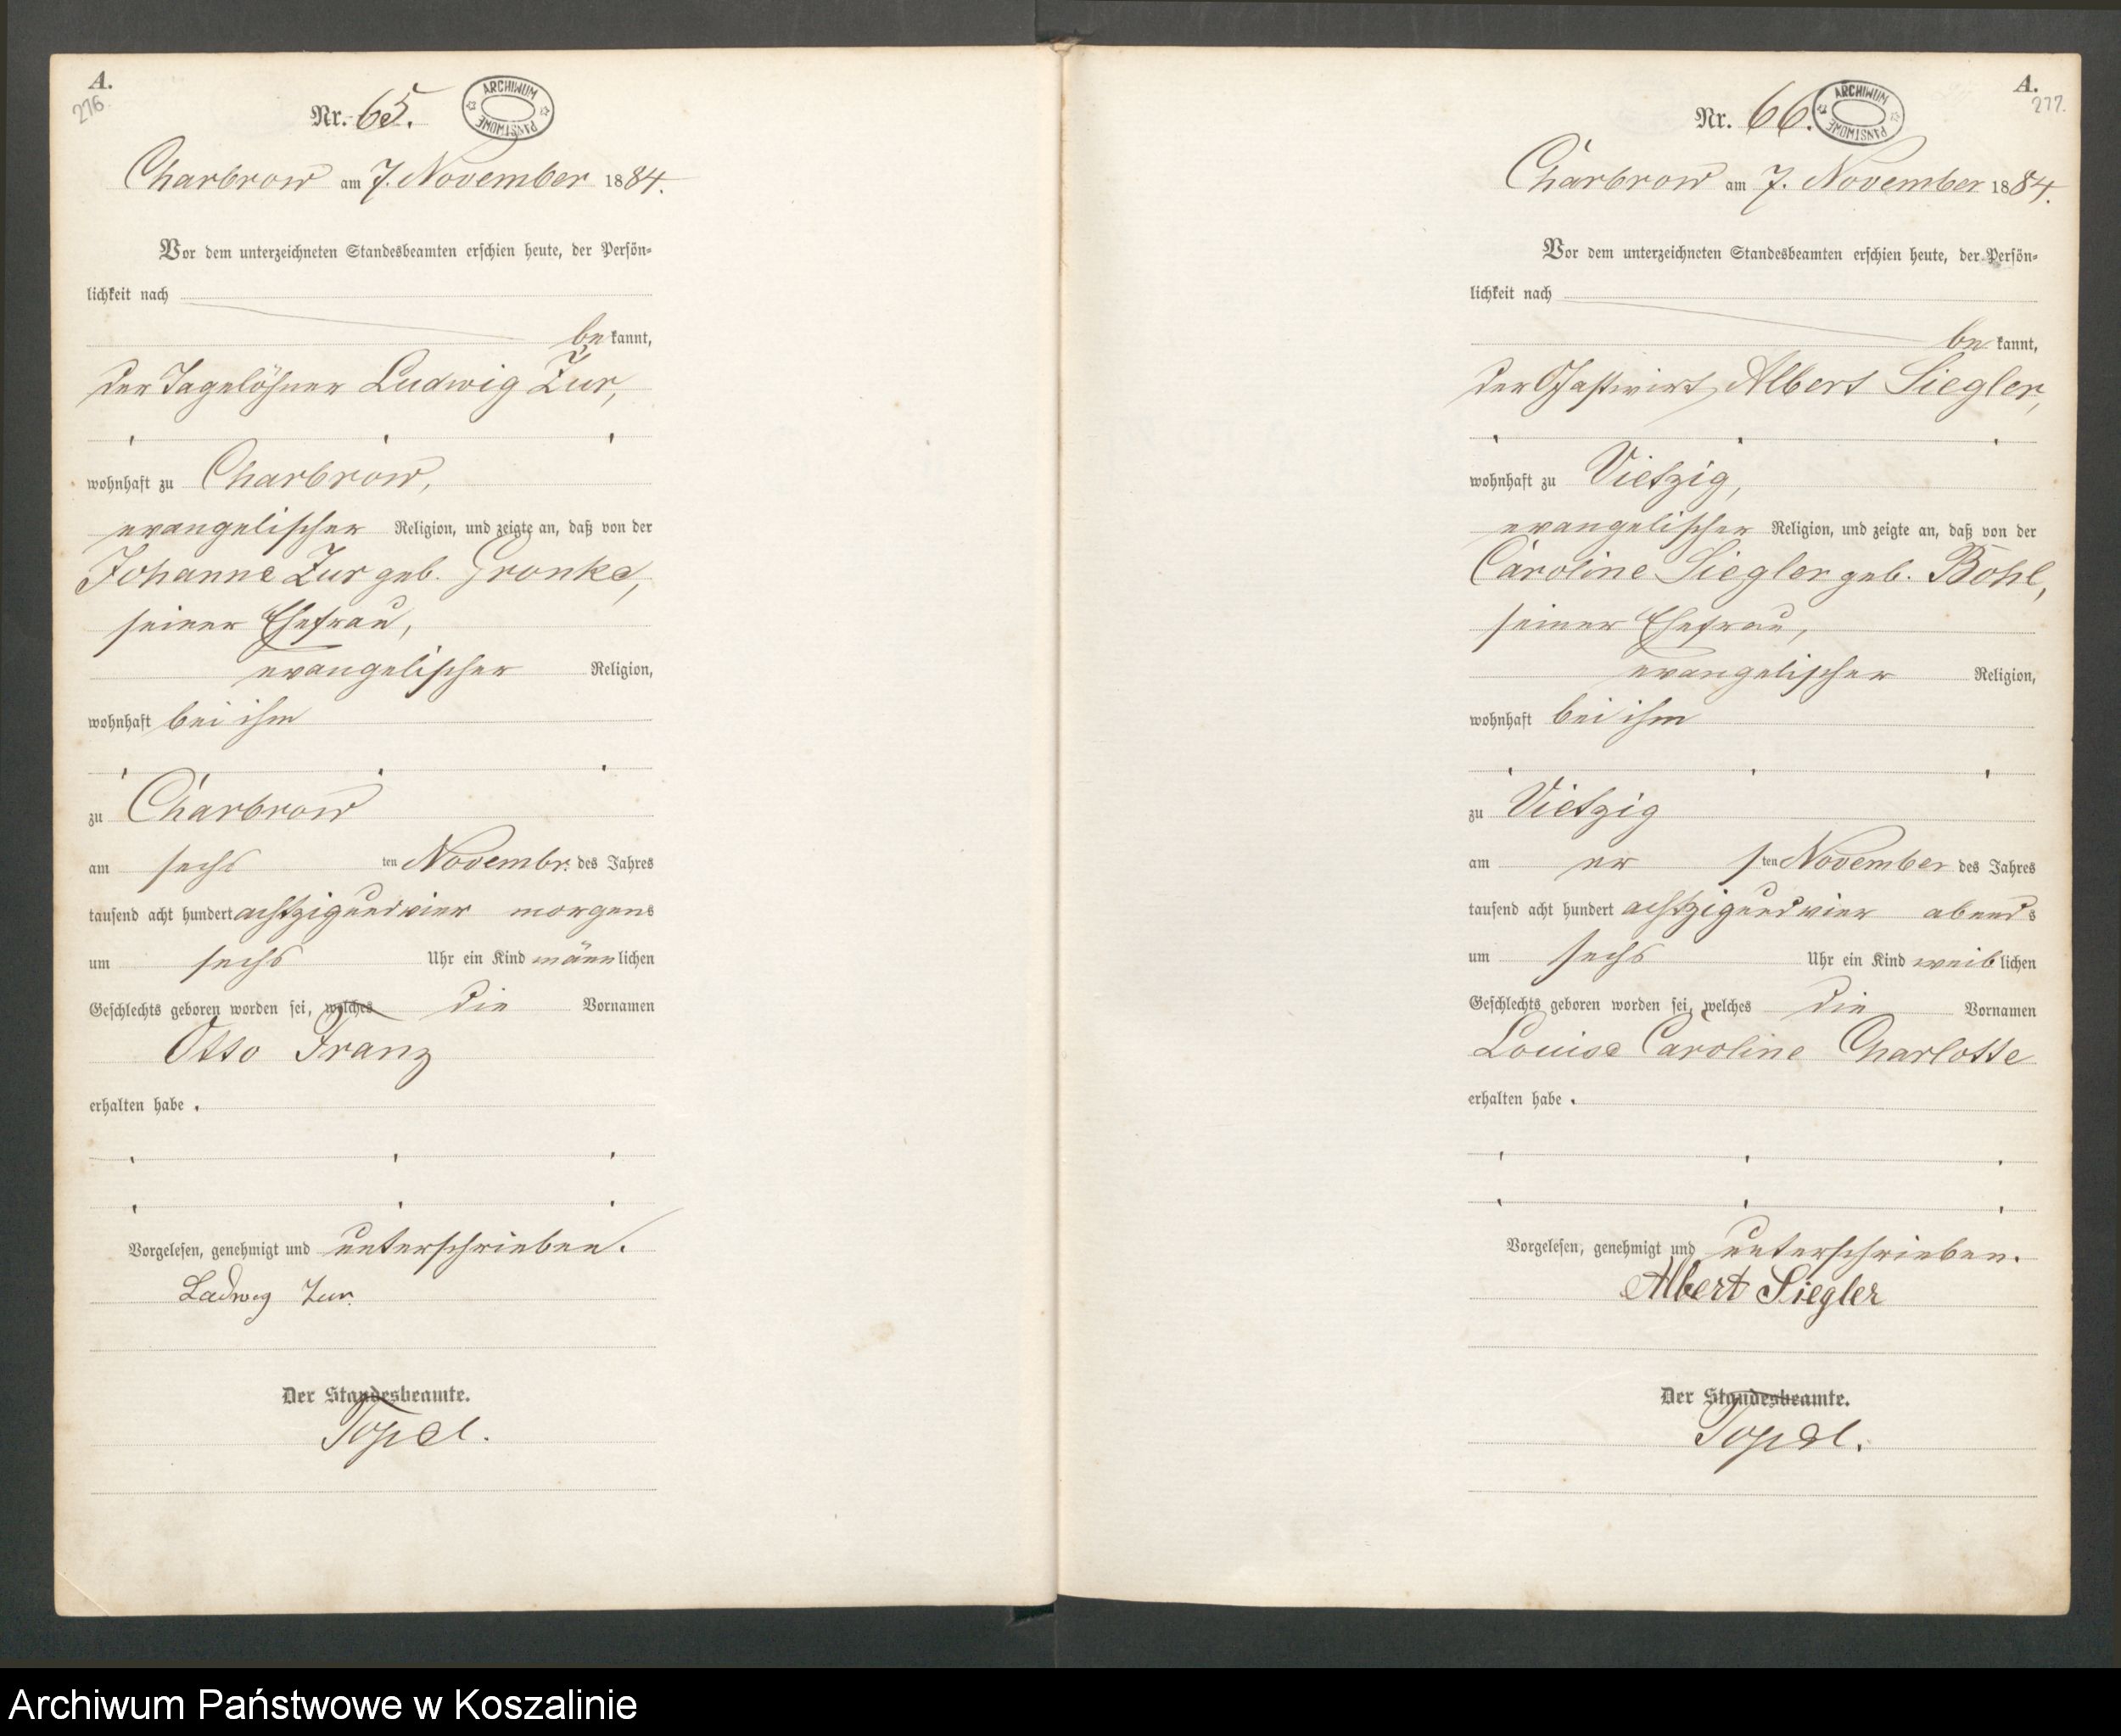 A.
276
Nr. 65.
ARCHIWUM PAŃSTWOWE
Charbrow am 7. November 1884.
Vor dem unterzeichneten Standesbeamten erschien heute, der Persön-
lichkeit nach
be kannt,
der Tagelöhner Ludwig Zur,
wohnhaft zu Charbrow,
evangelischer Religion, und zeigte an, daß von der
Johanne Zur geb. Gronke,
seiner Ehefrau,
evangelischer Religion,
wohnhaft bei ihm
zu Charbrow
am sechs ten Novembr. des Jahres
tausend acht hundert achtzigundvier morgens
um sechs Uhr ein Kind männlichen
Geschlechts geboren worden sei, welches die Vornamen
Otto Franz
erhalten habe.
Vorgelesen, genehmigt und unterschrieben.
Ludwig Zur
Der Standesbeamte.
Topel.
A.
277.
Nr. 66.
ARCHIWUM PAŃSTWOWE
Charbrow am 7. November 1884.
Vor dem unterzeichneten Standesbeamten erschien heute, der Persön-
lichkeit nach
be kannt,
der Gastwirt Albert Siegler,
wohnhaft zu Vietzig,
evangelischer Religion, und zeigte an, daß von der
Caroline Siegler geb. Bohl,
seiner Ehefrau,
evangelischer Religion,
wohnhaft bei ihm
zu Vietzig
am er sten November des Jahres
tausend acht hundert achtzigundvier abends
um sechs Uhr ein Kind weiblichen
Geschlechts geboren worden sei, welches die Vornamen
Louise Caroline Charlotte
erhalten habe.
Vorgelesen, genehmigt und unterschrieben.
Albert Siegler
Der Standesbeamte.
Topel.
Archiwum Państwowe w Koszalinie